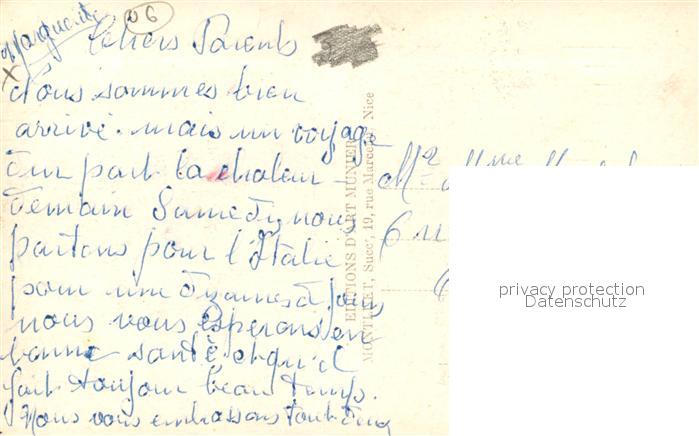 Marguerite
06
Chers Parents
Nous sommes bien
arrivé. mais un voyage
dur part la chaleur -
Demain Samedi, nous
partons pour l'Italie
pour une dizaines de jours
nous vous esperons en
bonne santé et qu'il
fait toujour beau temps.
Nous vous embrassons tout deux
EDITIONS D'ART MUNIER
MONTLUET, Succr, 19, rue Marceau, Nice
Mr Mme
privacy protection
Datenschutz